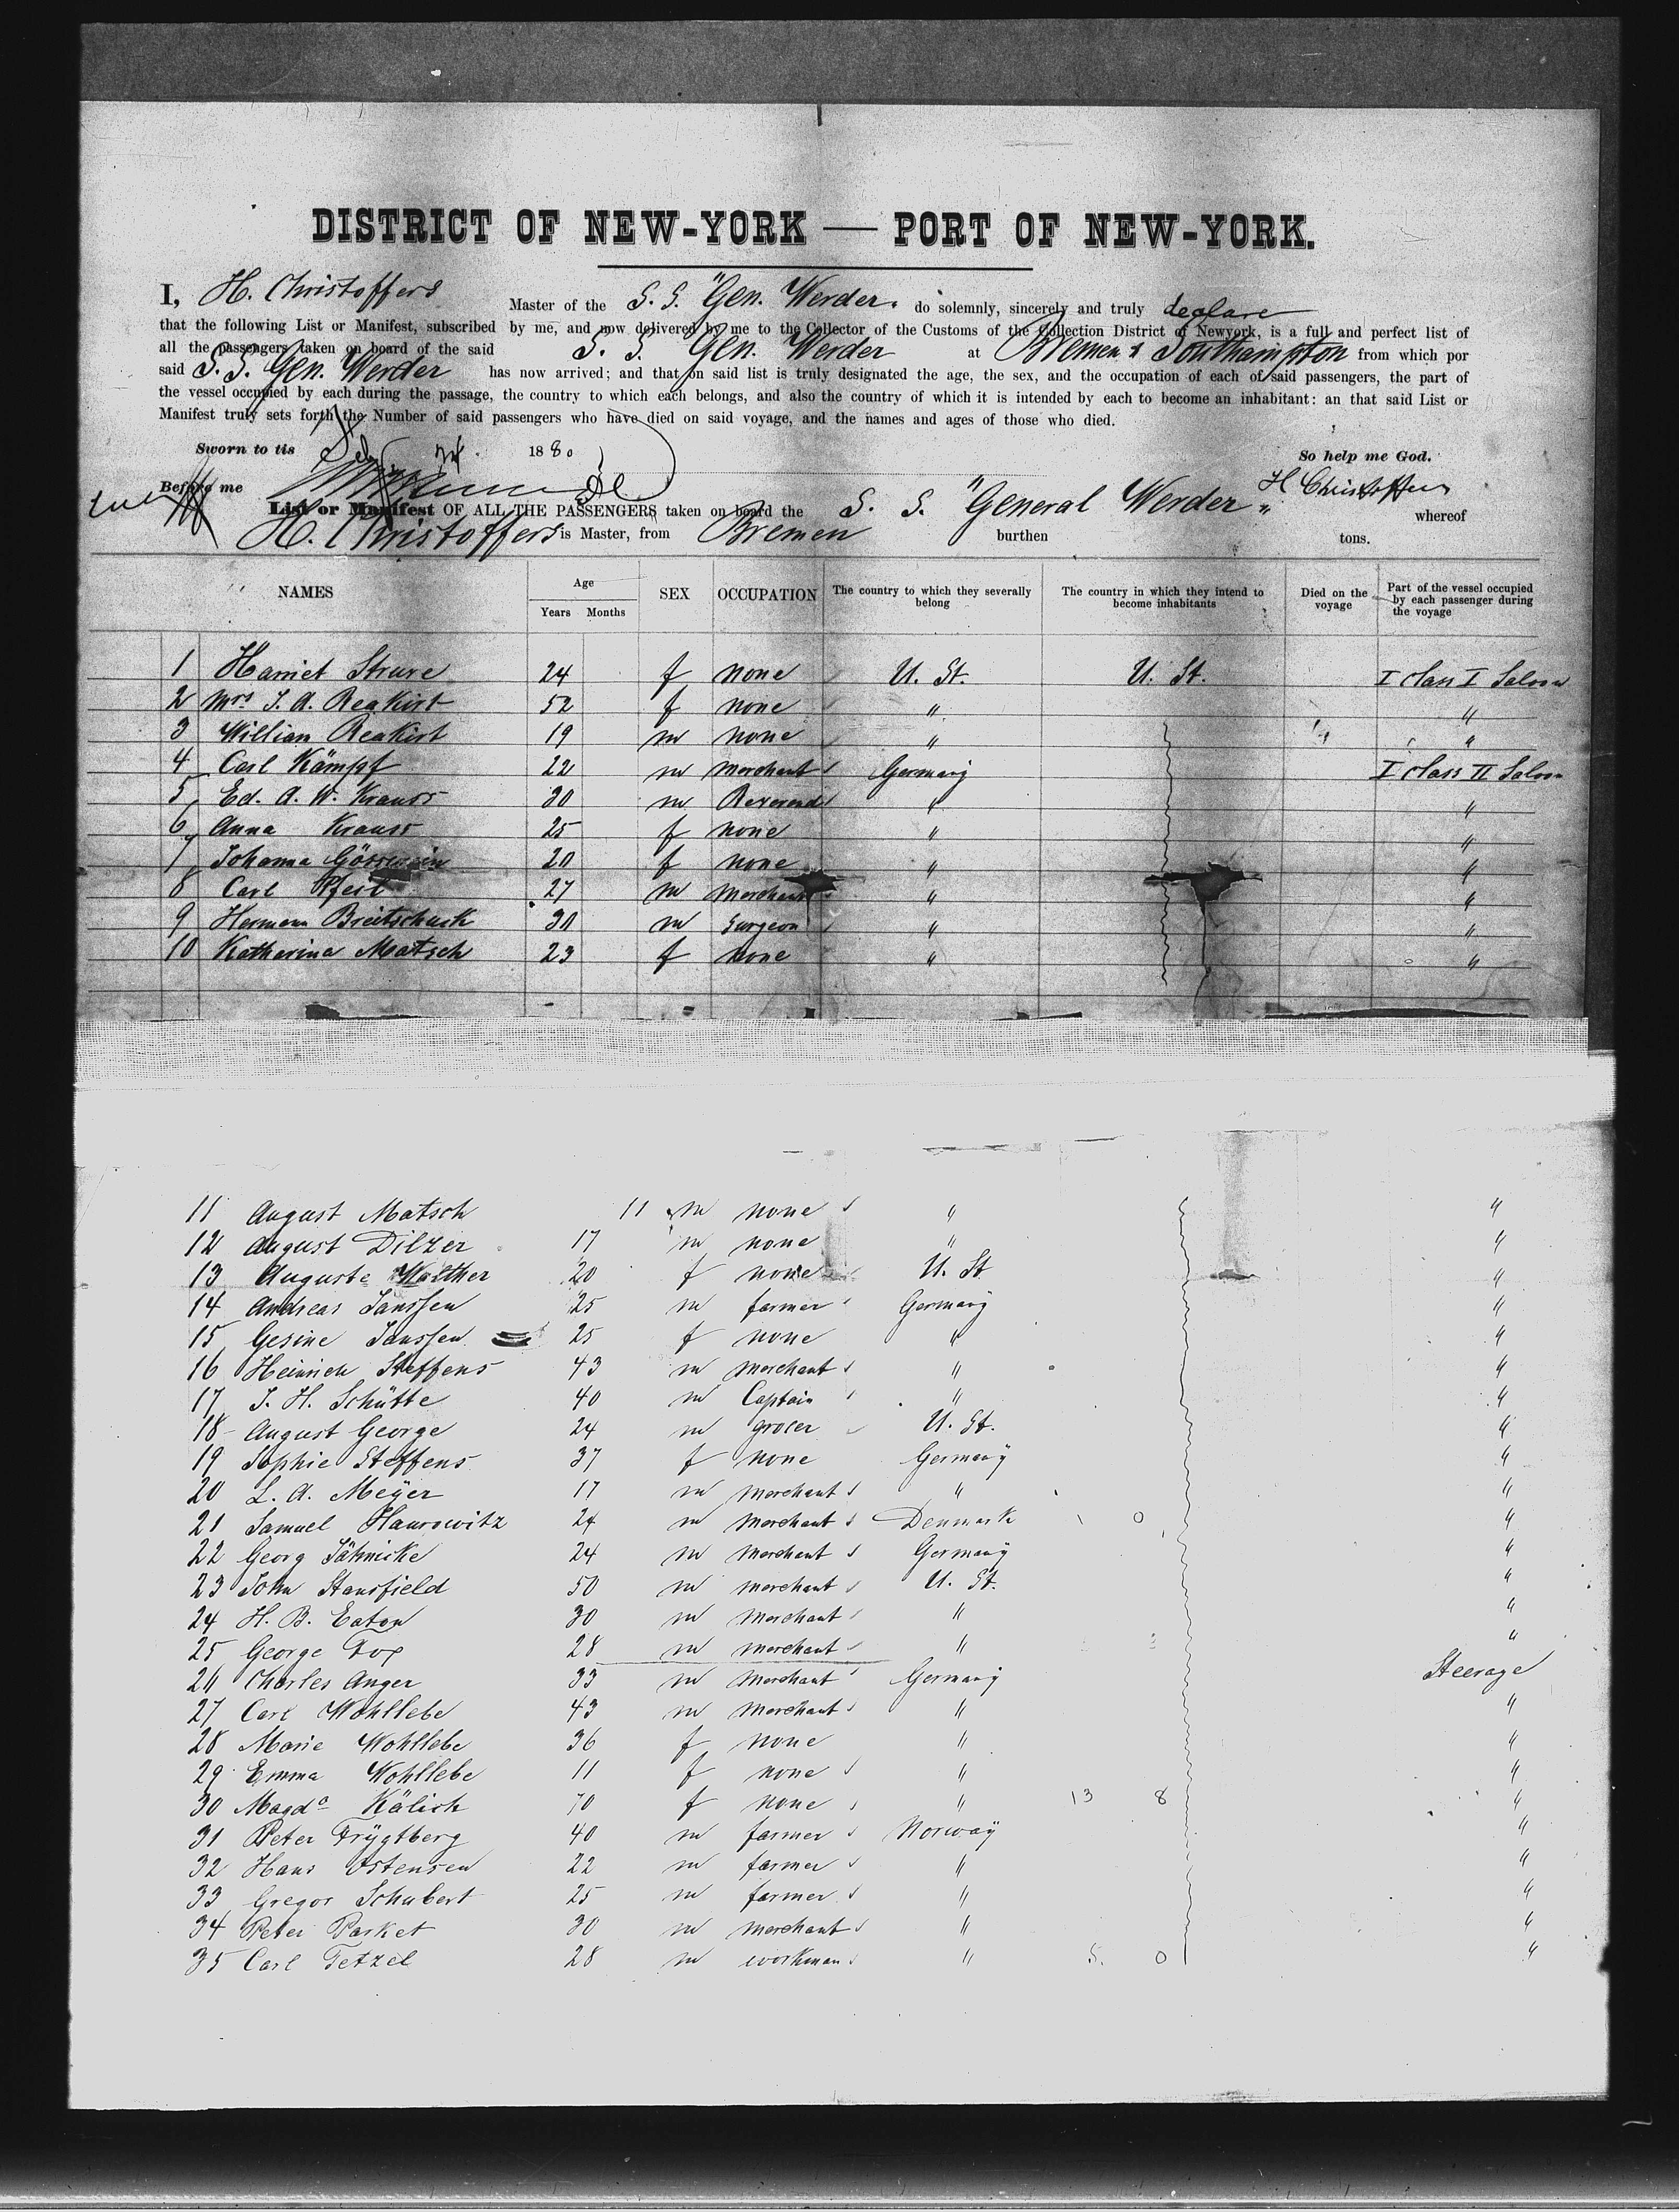 DISTRICT OF NEW-YORK — PORT OF NEW-YORK.
I, H. Christoffers Master of the S. S. "Gen. Werder. do solemnly, sincerely and truly declare
that the following List or Manifest, subscribed by me, and now delivered by me to the Collector of the Customs of the Collection District of Newyork, is a full and perfect list of
all the passengers taken on board of the said S. S. Gen. Werder at Bremen & Southampton from which por
said S. S. Gen. Werder has now arrived; and that on said list is truly designated the age, the sex, and the occupation of each of said passengers, the part of
the vessel occupied by each during the passage, the country to which each belongs, and also the country of which it is intended by each to become an inhabitant: an that said List or
Manifest truly sets forth the Number of said passengers who have died on said voyage, and the names and ages of those who died.
Sworn to tis 1880 So help me God.
Before me H Christoffers
List or Manifest OF ALL THE PASSENGERS taken on board the S. S. "General Werder" whereof
H. Christoffers is Master, from Bremen burthen tons.
NAMES Age Years Months SEX OCCUPATION The country to which they severally belong The country in which they intend to become inhabitants Died on the voyage Part of the vessel occupied by each passenger during the voyage
1 Harriet Struve 24 f none U. St. U. St. I class I Saloon
2 Mrs J. A. Reakirt 52 f none " "
3 William Reakirt 19 m none " "
4 Carl Kämpf 22 m merchant Germany I class II Saloon
5 Ed. A. W. Krauss 30 m Reverend " "
6 Anna Krauss 25 f none " "
7 Johanna Gösswein 20 f none " "
8 Carl Pfeil 27 m merchant " "
9 Hermann Breitschuck 30 m Surgeon " "
10 Katharina Matsch 23 f none " "
11 August Matsch 11 m none " "
12 August Dilzer 17 m none " "
13 Auguste Walther 20 f none U. St "
14 Andreas Janssen 25 m farmer Germany "
15 Gesine Janssen 25 f none " "
16 Heinrich Steffens 43 m merchant " "
17 J. H. Schütte 40 m Captain " "
18 August George 24 m grocer U. St. "
19 Sophie Steffens 37 f none Germany "
20 L. A. Meÿer 17 m merchant " "
21 Samuel Haurowitz 24 m merchant Denmark 1 0 "
22 Georg Jähnicke 24 m merchant Germany "
23 John Stansfield 50 m merchant U. St. "
24 H. B. Eaton 30 m merchant " "
25 George Fox 28 m merchant " "
26 Charles Anger 33 m merchant Germany Steerage
27 Carl Wohllebe 43 m merchant " "
28 Marie Wohllebe 36 f none " "
29 Emma Wohllebe 11 f none " "
30 Magda Kälich 70 f none " 13 8 "
31 Peter Frÿgtberg 40 m farmer Norway "
32 Hans Ostensen 22 m farmer " "
33 Gregor Schubert 25 m farmer " "
34 Peter Parket 30 m merchant " "
35 Carl Tetzel 28 m workman " 5. 0 "